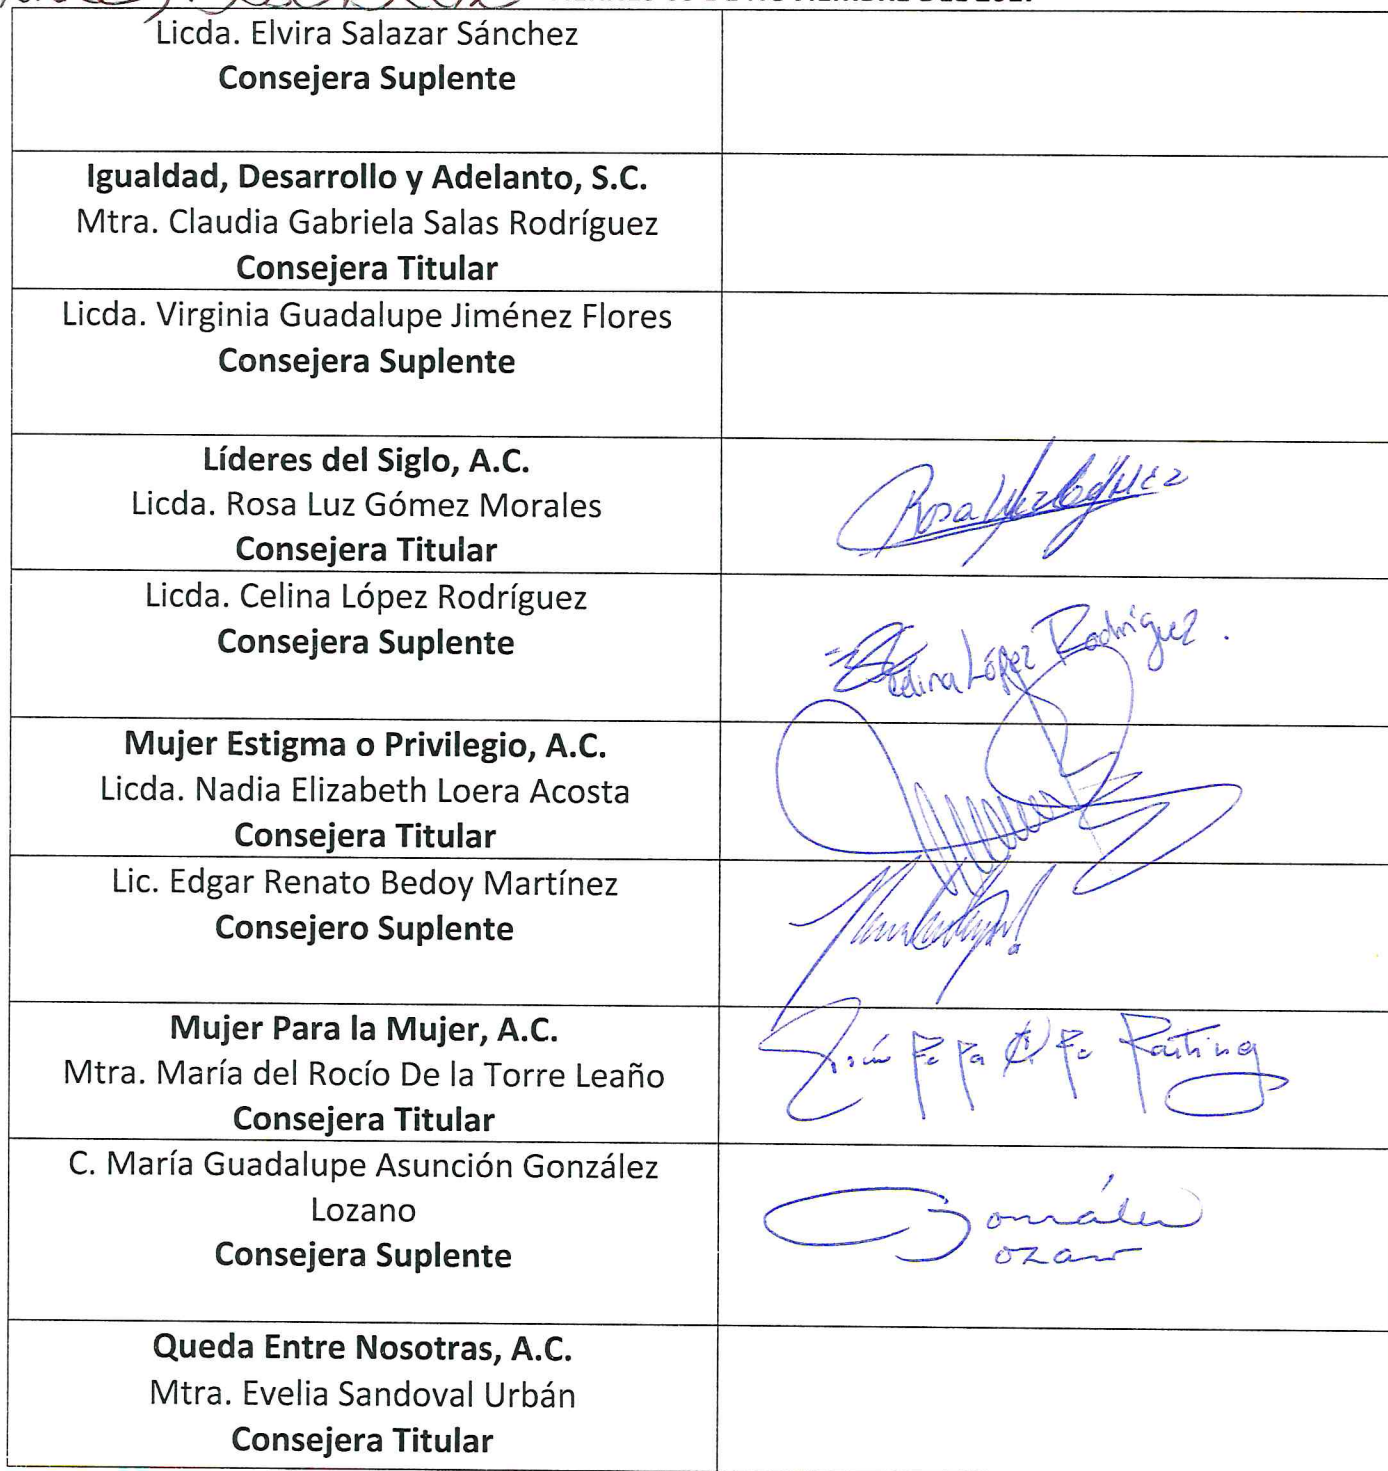 Licda. Elvira Salazar Sánchez
Consejera Suplente
Igualdad, Desarrollo y Adelanto, S.C.
Mtra. Claudia Gabriela Salas Rodríguez
Consejera Titular
Licda. Virginia Guadalupe Jiménez Flores
Consejera Suplente
Líderes del Siglo, A.C.
Licda. Rosa Luz Gómez Morales
Consejera Titular
Rosa
Licda. Celina López Rodríguez
Consejera Suplente
Celina López Rodríguez.
Mujer Estigma o Privilegio, A.C.
Licda. Nadia Elizabeth Loera Acosta
Consejera Titular
Lic. Edgar Renato Bedoy Martínez
Consejero Suplente
Mujer Para la Mujer, A.C.
Mtra. María del Rocío De la Torre Leaño
Consejera Titular
C. María Guadalupe Asunción González
Lozano
Consejera Suplente
González
ozano
Queda Entre Nosotras, A.C.
Mtra. Evelia Sandoval Urbán
Consejera Titular